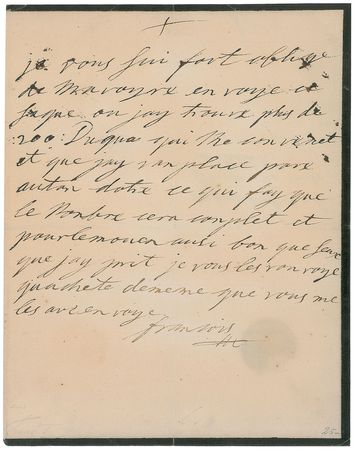 +
je vous sui fort oblige
de mavoyre envoye ce
saque ou jay trouve plus de
200: Duqua qui me convenet
et que jay ranplace pare
autan dotre ce qui fay que
le Nombre cera complet et
pour le moien ausi bon que seux
que jay prit je vous les ranvoye
quachete de meme que vous me
les ave envoye
francois
25-